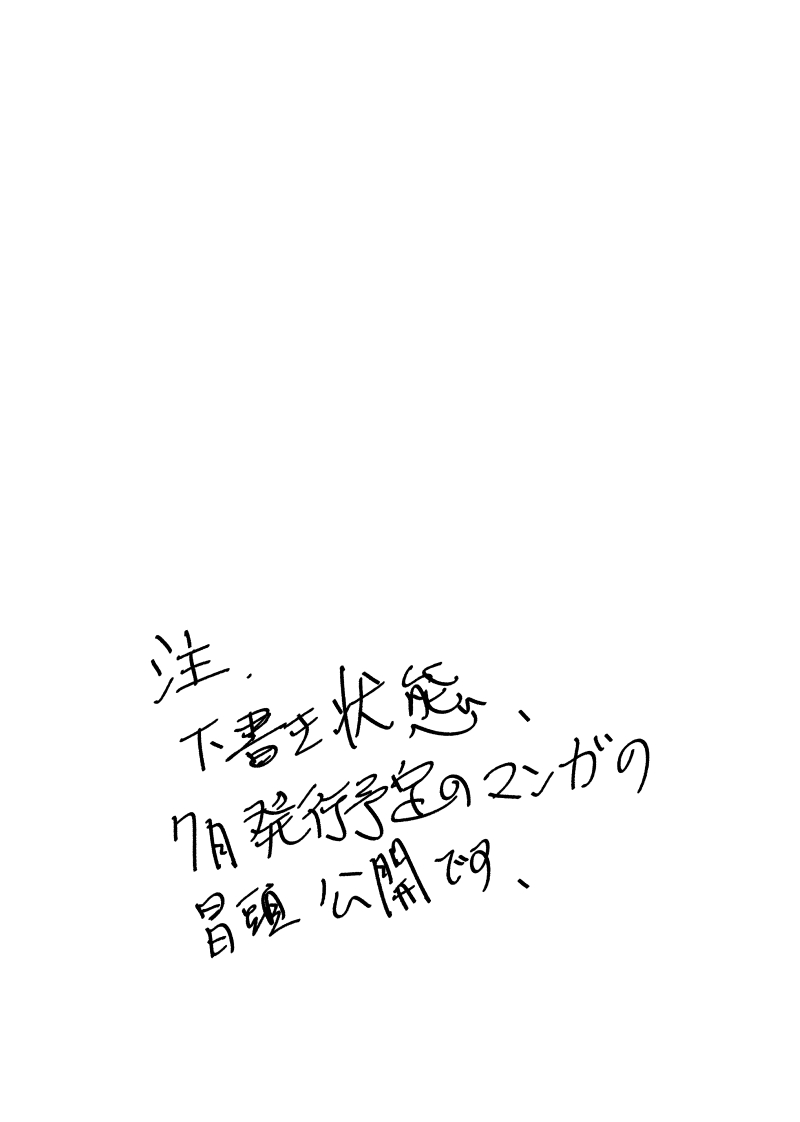 注.
下書き状態、
7月発行予定のマンガの
冒頭公開です、